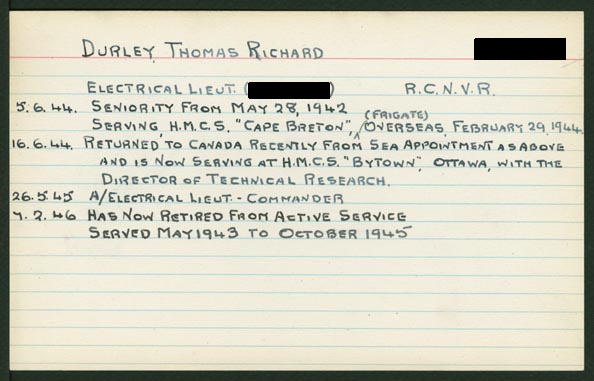 DURLEY, THOMAS RICHARD
ELECTRICAL LIEUT. ( ) R.C.N.V.R.
5.6.44. SENIORITY FROM MAY 28, 1942
(FRIGATE)
SERVING, H.M.C.S. "CAPE BRETON", ^ OVERSEAS, FEBRUARY 29, 1944.
16.6.44. RETURNED TO CANADA RECENTLY FROM SEA APPOINTMENT AS ABOVE
AND IS NOW SERVING AT H.M.C.S. "BYTOWN", OTTAWA, WITH THE
DIRECTOR OF TECHNICAL RESEARCH.
26.5.45 A/ELECTRICAL LIEUT.-COMMANDER
7.2.46 HAS NOW RETIRED FROM ACTIVE SERVICE
SERVED MAY 1943 TO OCTOBER 1945